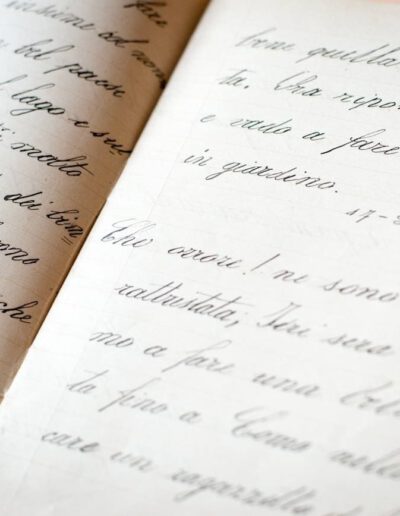 fare
insieme ad
bel paese
lago e sul
molto
dei bim
che
bene quella
ta. Ora ripo
e vado a fare
in giardino.
17-
Che orrore! ne sono
rattristata; Ieri sera
mo a fare una bella
ta fino a Como nella
care un ragazzetto